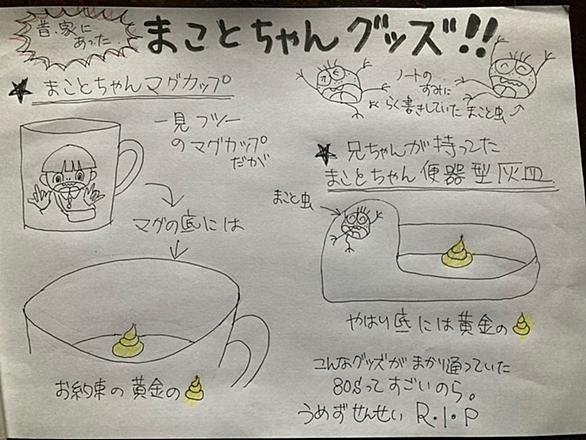 昔、家に
あった
まことちゃんグッズ!!
★まことちゃんマグカップ
一見フツー
のマグカップ
だが
マグの底には
お約束の黄金の
ノートの
すみに
らく書きしていた まこと虫
★兄ちゃんが持ってた
まことちゃん便器型灰皿
まこと虫
やはり底には黄金の
こんなグッズがまかり通っていた
80sってすごいのら。
うめずせんせい R.I.P